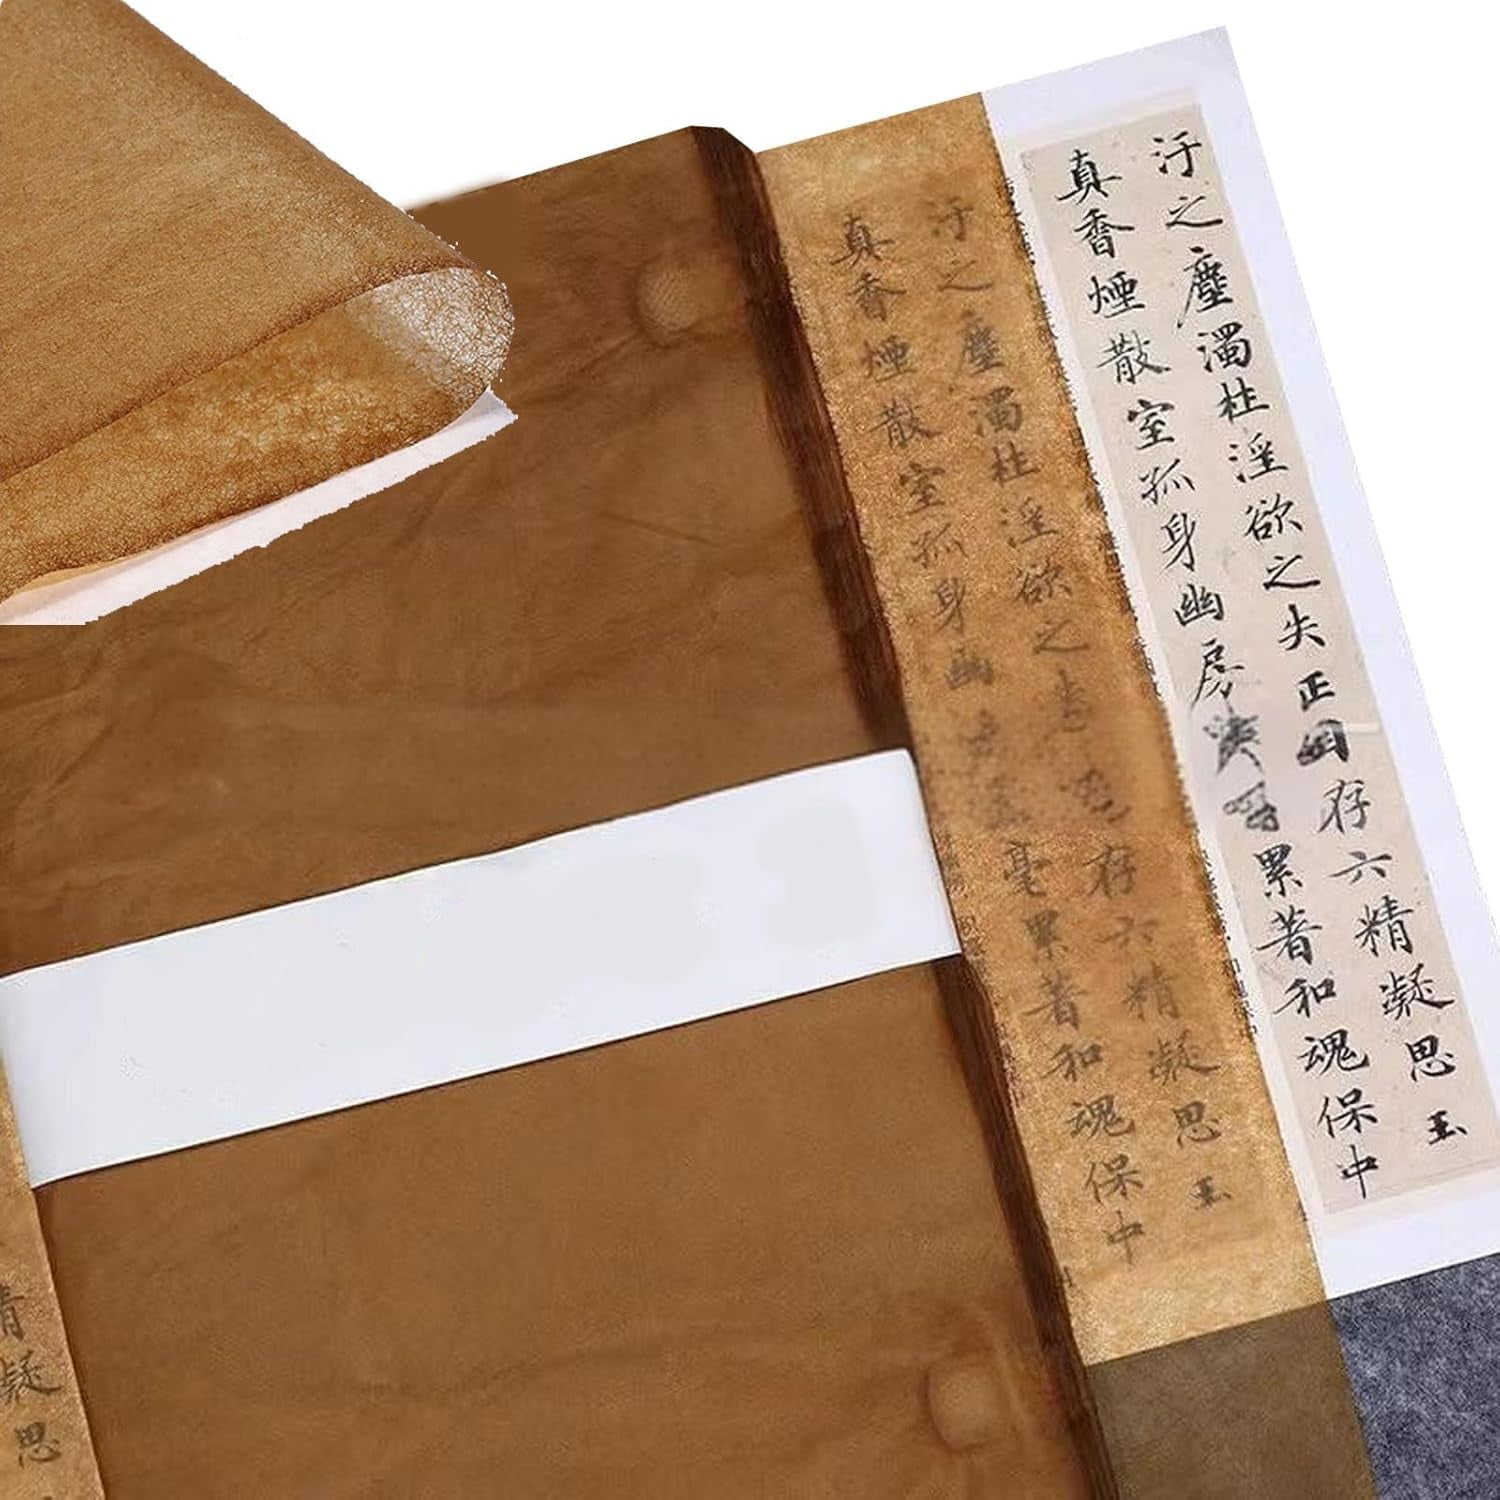 汙之塵濁杜淫欲之失正
存六精凝思玉
真香煙散室孤身幽房
累著和魂保中
汙之塵濁杜淫欲之
存六精凝思玉
真香煙散室孤身幽
毫累著和魂保中
凝思